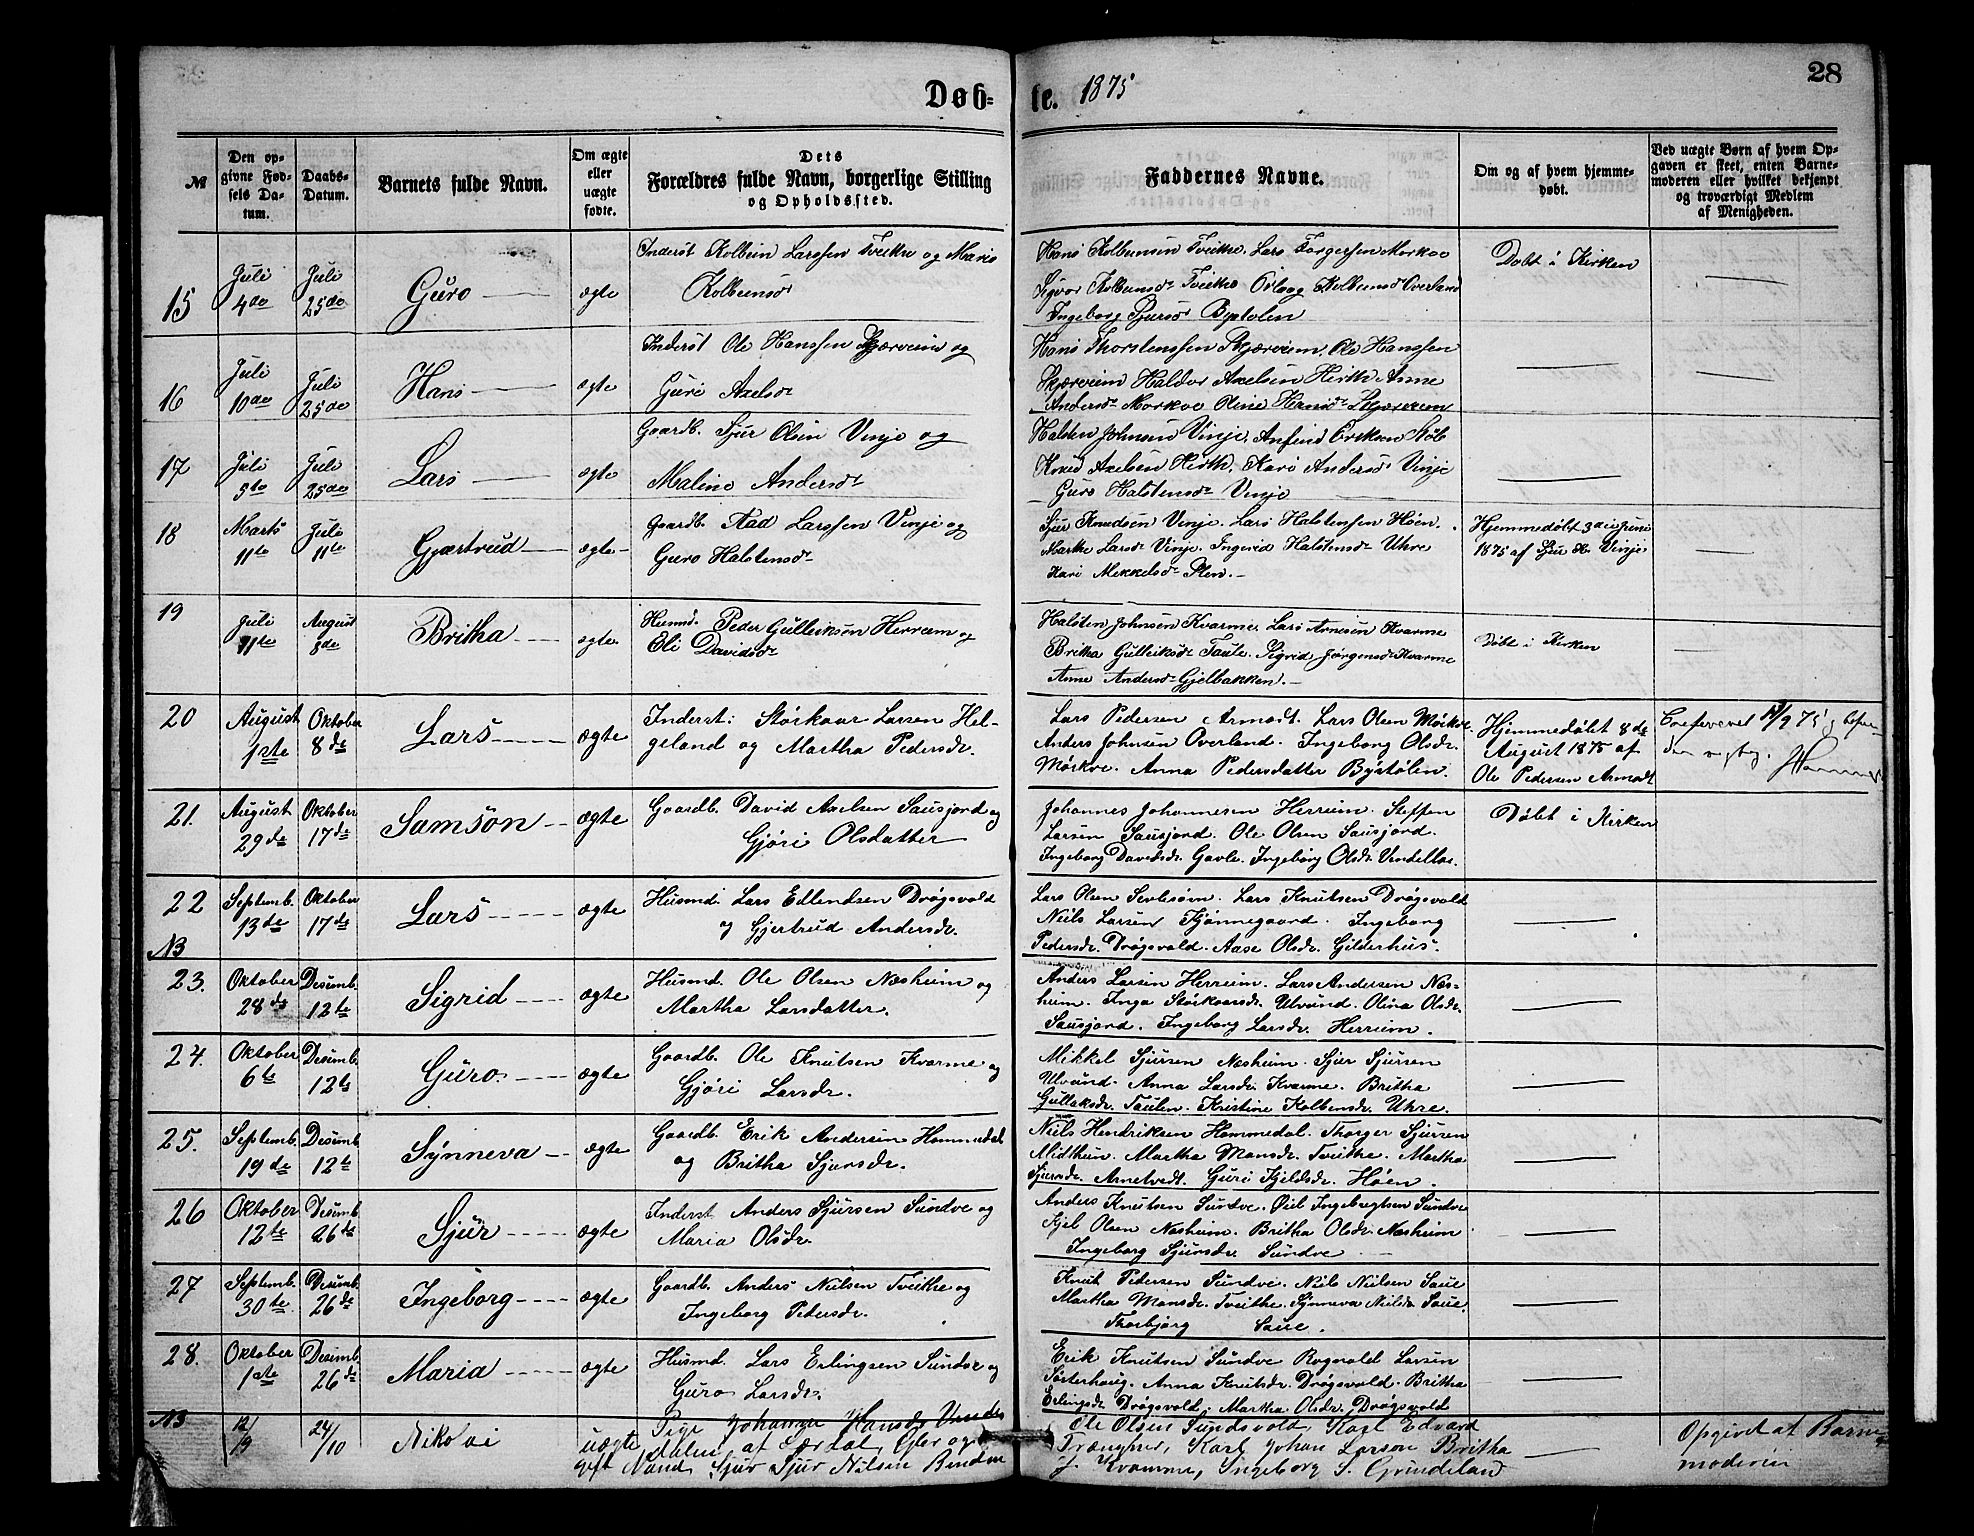 Døb-
te. 1875
28
№
Den op-
givne Fød-
sels Da-
tum.
Daabs-
Datum.
Barnets fulde Navn.
Om ægte
eller
uægte
fødte.
Dets
Forældres fulde Navn, borgerlige Stilling
og Opholdssted.
Faddernes Navne.
Om og af hvem hjemme-
døbt.
Ved uægte Børn af hvem Op-
gaven er skeet, enten Barne-
moderen eller hvilket bekjendt
og troværdigt Medlem
af Menigheden.
15
Juli
4de
Juli
25de
Guro
ægte
Inderst Kolbein Larssen Tveitne og Maris
Kolbeinsdr
Hans Kolbeinsen Tveitne. Lars Torgersen Mørkve
Sigvor Kolbeinsdr Tveitne Kolbeinsdr Overland
Ingeborg Sjursdr Bystølen
Døbt i Kirken
16
Juli
10de
Juli
25de
Hans
ægte
Inderst Ole Hanssen Skjerveim og
Guri Axelsdr
Hans Thorstenssen Skjerveim. Ole Hanssen
Skjerveim Haldor Axelsen Hirth Anne
Andersdr Mørkve Oline Skjerveim
17
Juli
5te
Juli
25de
Lars
ægte
Gaardb. Sjur Olsen Vinje og
Maline Andersdr
Halsten Johnsen Vinje. Anfind Eriksen Støb
Knud Axelsen Hirth. Kari Andersdr Vinje
Guro Halstensdr Vinje
18
Marts
11te
Juli
11te
Gjærtrud
ægte
Gaardb. Aad Larssen Vinje og
Guro Halstensdr
Sjur Knudsen Vinje. Lars Halstensen Høen.
Marthe Larsdr Vinje. Ingerid Halstensdr Uhre
Kari Mikkelsdr Slen.
Hjemmedøbt 3die Juni
1875 af Sjur K. Vinje
19
Juli
11te
August
8de
Britha
ægte
Husmd. Peder Gulleiksen Herreim og
Eli Davidsdr
Halsten Johnsen Kvarme. Lars Arnesen Kvarme
Britha Gulleiksdr Taule. Sigrid Jørgensdr Kvarme
Anne Andersdr Gjelbakken.
Døbt i Kirken
20
August
1ste
Oktober
8de
Lars
ægte
Inderst: Størkaar Larsen Hel-
geland og Martha Pedersdr.
Lars Pedersen Armodt. Lars Olsen Mørkve
Anders Johnsen Overland. Ingeborg Olsdr.
Mørkve. Anna Pedersdatter Bystølen.
Hjemmedøbt 8de
August 1875 af
Ole Pedersen Armodt
21.
August
29de
Oktober
17de
Samson
ægte
Gaardb. David Axelsen Sausjord og
Gjøri Olsdatter
Johannes Johannesen Herreim. Steffen
Larsen Sausjord. Ole Olsen Sausjord.
Ingeborg Davidsdr. Gavle. Ingeborg Olsdr.
Døbt i Kirken
22
NB
Septemb.
13de
Oktober
17de
Lars
ægte
Husmd. Lars Edlendsen Drøgsvold
og Gjertrud Andersdr.
Lars Olsen Lars Knutsen Drøgsvold
Niels Larsen Tjønnegaard. Ingeborg
Pedersdr. Drøgsvold. Aase Olsdr. Gilderhus.
23.
Oktober
28de
Desemb.
12te
Sigrid
ægte
Husmd. Ole Olsen Næsheim og
Martha Larsdatter.
Anders Larsen Herreim. Lars Andersen Næs-
heim. Inga Størkaarsdr. Ulvund. Olina Olsdr.
Sausjord. Ingeborg Larsdr. Herreim.
24.
Oktober
6te
Desemb.
12te
Guro.
ægte
Gaardb. Ole Knutsen Kvarme og
Gjøri Larsdr.
Mikkel Sjursen Næsheim. Sjur Sjursen
Ulvund. Anna Larsdr. Kvarme. Britha
Gullaksdr. Taulen. Kristine Kolbensdr. Uhre.
25.
Septemb.
19de
Desemb.
12te
Synneva
ægte
Gaardb. Erik Andersen Hommedal
og Britha Sjursdr.
Niels Hendriksen Hommedal. Thorger Sjursen
Midthun. Martha Monsdr. Tveithe. Martha
Sjursdr. Arnetvedt. Guri Kjeldsdr. Høen.
26
Oktober
12te
Desemb.
26de
Sjur
ægte
Inderst Anders Sjursen Sundve og
Maria Olsdr.
Anders Knutsen Sundve. Ingebrigtsen Sundve
Kjel Olsen Næsheim. Britha Olsdr. Næsheim
Ingeborg Sjursdr. Sundve
27
Septemb.
30te
Desemb.
26de
Ingeborg
ægte
Gaardb. Anders Nielsen Tveithe og
Ingeborg Pedersdr.
Knut Pedersen Sundve. Niels Nielsen Saue
Martha Monsdr. Tveithe. Synneva Nielsdr Saue.
Thorbjørg Saue.
28.
Oktober
1ste
Desemb.
26de
Maria
ægte
Husmd. Lars Erlingsen Sundve og
Guro Larsdr.
Erik Knutsen Sundve Rognald Larsen
Anna Knutsdr. Drøgsvold. Britha
Erlingsdr Drøgsvold. Martha Olsdr. Drøgsvold
NB
12/9
24/10
Nikolai
uægte
Pige Johanna Hansdr
af og
gift Mand Sjur Sjur Nilsen
Ole Olsen Sundsvold, Karl Edvard
Trængner, Karl Johan Larson Britha
J. Kvamme, Ingeborg S. Grindeland
Opgivet at Barne
moderen